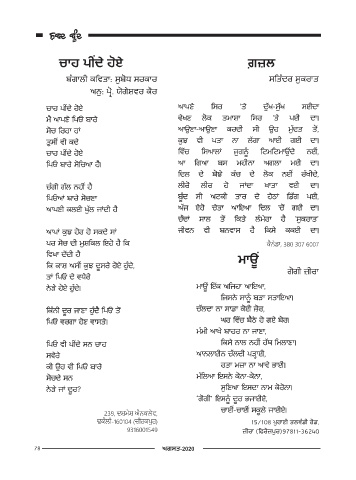 ਚਾਹ ਪੀਂਦੇ ਹੋਏ
ਬੰਗਾਲੀ ਕਵਿਤਾ: ਸੁਬੋਧ ਸਰਕਾਰ
ਅਨੁ: ਪ੍ਰੋ. ਯੋਗੇਸ਼ਵਰ ਕੌਰ
ਚਾਹ ਪੀਂਦੇ ਹੋਏ
ਮੈਂ ਆਪਣੇ ਪਿਓ ਬਾਰੇ
ਸੋਚ ਰਿਹਾ ਹਾਂ
ਤੁਸੀਂ ਵੀ ਕਦੇ
ਚਾਹ ਪੀਂਦੇ ਹੋਏ
ਪਿਓ ਬਾਰੇ ਸੋਚਿਆ ਹੈ।
ਚੰਗੀ ਗੱਲ ਨਹੀਂ ਹੈ
ਪਿਓਆਂ ਬਾਰੇ ਸੋਚਣਾ
ਆਪਣੀ ਕਲਈ ਖੁੱਲ ਜਾਂਦੀ ਹੈ
ਆਪਾਂ ਕੁਝ ਹੋਰ ਹੋ ਸਕਦੇ ਸਾਂ
ਪਰ ਸੋਚ ਦੀ ਮੁਸ਼ਕਿਲ ਇਹੋ ਹੈ ਕਿ
ਦਿਖਾ ਦੇਂਦੀ ਹੈ
ਕਿ ਕਾਸ਼ ਅਸੀਂ ਕੁਝ ਦੂਸਰੇ ਹੋਏ ਹੁੰਦੇ,
ਤਾਂ ਪਿਓ ਦੇ ਵਧੇਰੇ
ਨੇੜੇ ਹੋਏ ਹੁੰਦੇ।
ਕਿੰਨੀ ਦੂਰ ਜਾਣਾ ਹੁੰਦੈ ਪਿਓ ਤੋਂ
ਪਿਓ ਵਰਗਾ ਹੋਣ ਵਾਸਤੇ।
ਪਿਓ ਵੀ ਪੀਂਦੇ ਸਨ ਚਾਹ
ਸਵੇਰੇ
ਕੀ ਉਹ ਵੀ ਪਿਓ ਬਾਰੇ
ਸੋਚਦੇ ਸਨ
ਨੇੜੇ ਜਾਂ ਦੂਰ?
239, ਦਸ਼ਮੇਸ਼ ਐਨਕਲੇਵ,
ਢਕੌਲੀ-160104 (ਜ਼ੀਰਕਪੁਰ)
9316001549
ਗ਼ਜ਼ਲ
ਸਤਿੰਦਰ ਸੁਕਰਾਤ
ਆਪਣੇ ਸਿਰ 'ਤੇ ਦੁੱਖ-ਸੁੱਖ ਸਈਦਾ
ਵੇਖਣ ਲੋਕ ਤਮਾਸ਼ਾ ਸਿਰ 'ਤੇ ਪਈ ਦਾ।
ਆਉਣਾ-ਆਉਣਾ ਕਰਦੀ ਸੀ ਉਹ ਮੁੱਦਤ ਤੋਂ,
ਕੁਝ ਵੀ ਪਤਾ ਨਾ ਲੱਗਾ ਆਈ ਗਈ ਦਾ।
ਵਿੱਚ ਸਿਆਲਾਂ ਜੁਗਨੂੰ ਟਿਮਟਿਮਾਉਂਦੇ ਨਹੀਂ,
ਆ ਗਿਆ ਬਸ ਮਹੀਨਾ ਅਗਲਾ ਮਈ ਦਾ।
ਦਿਲ ਦੇ ਬੋਝੇ ਕੱਚ ਦੇ ਲੋਕ ਨਈਂ ਰੱਖੀਦੇ,
ਲੀਰੋ ਲੀਰ ਹੋ ਜਾਂਦਾ ਖਾਤਾ ਵਹੀ ਦਾ।
ਬੂੰਦ ਸੀ ਅਟਕੀ ਤਾਰ ਦੇ ਹੇਠਾਂ ਡਿੱਗ ਪਈ,
ਅੱਜ ਏਹੋ ਚੇਤਾ ਆਇਆ ਦਿਲ 'ਚੋਂ ਗਈ ਦਾ।
ਚੌਦਾਂ ਸਾਲ ਤੋਂ ਕਿਤੇ ਲੰਮੇਰਾ ਹੈ 'ਸੁਕਰਾਤ'
ਜੀਵਨ ਵੀ ਬਨਵਾਸ ਹੈ ਕਿਸੇ ਕਕਈ ਦਾ।
ਕੈਨੇਡਾ, 380 307 6007
ਮਾਊਂ
ਗੋਗੀ ਜ਼ੀਰਾ
ਮਾਊਂ ਇੱਕ ਅਜਿਹਾ ਆਇਆ,
ਜਿਸਨੇ ਸਾਨੂੰ ਬੜਾ ਸਤਾਇਆ।
ਚੱਲਦਾ ਨਾ ਸਾਡਾ ਕੋਈ ਜ਼ੋਰ,
ਘਰ ਵਿੱਚ ਬੈਠੇ ਹੋ ਗਏ ਬੋਰ।
ਮੰਮੀ ਆਖੇ ਬਾਹਰ ਨਾ ਜਾਣਾ,
ਕਿਸੇ ਨਾਲ ਨਹੀਂ ਹੱਥ ਮਿਲਾਣਾ।
ਆਨਲਾਈਨ ਚੱਲਦੀ ਪੜ੍ਹਾਈ,
ਰਤਾ ਮਜ਼ਾ ਨਾ ਆਵੇ ਭਾਈ।
ਮੱਲਿਆ ਇਸਨੇ ਕੋਨਾ-ਕੋਨਾ,
ਸੁਣਿਆ ਇਸਦਾ ਨਾਮ ਕੋਰੋਨਾ।
'ਗੋਗੀ' ਇਸਨੂੰ ਦੂਰ ਭਜਾਈਏ,
ਚਾਈਂ-ਚਾਈਂ ਸਕੂਲੇ ਜਾਈਏ।
15/108 ਪੁਰਾਣੀ ਤਲਵੰਡੀ ਰੋਡ,
ਜ਼ੀਰਾ (ਫ਼ਿਰੋਜ਼ਪੁਰ) 97811-36240
78
ਅਗਸਤ-2020